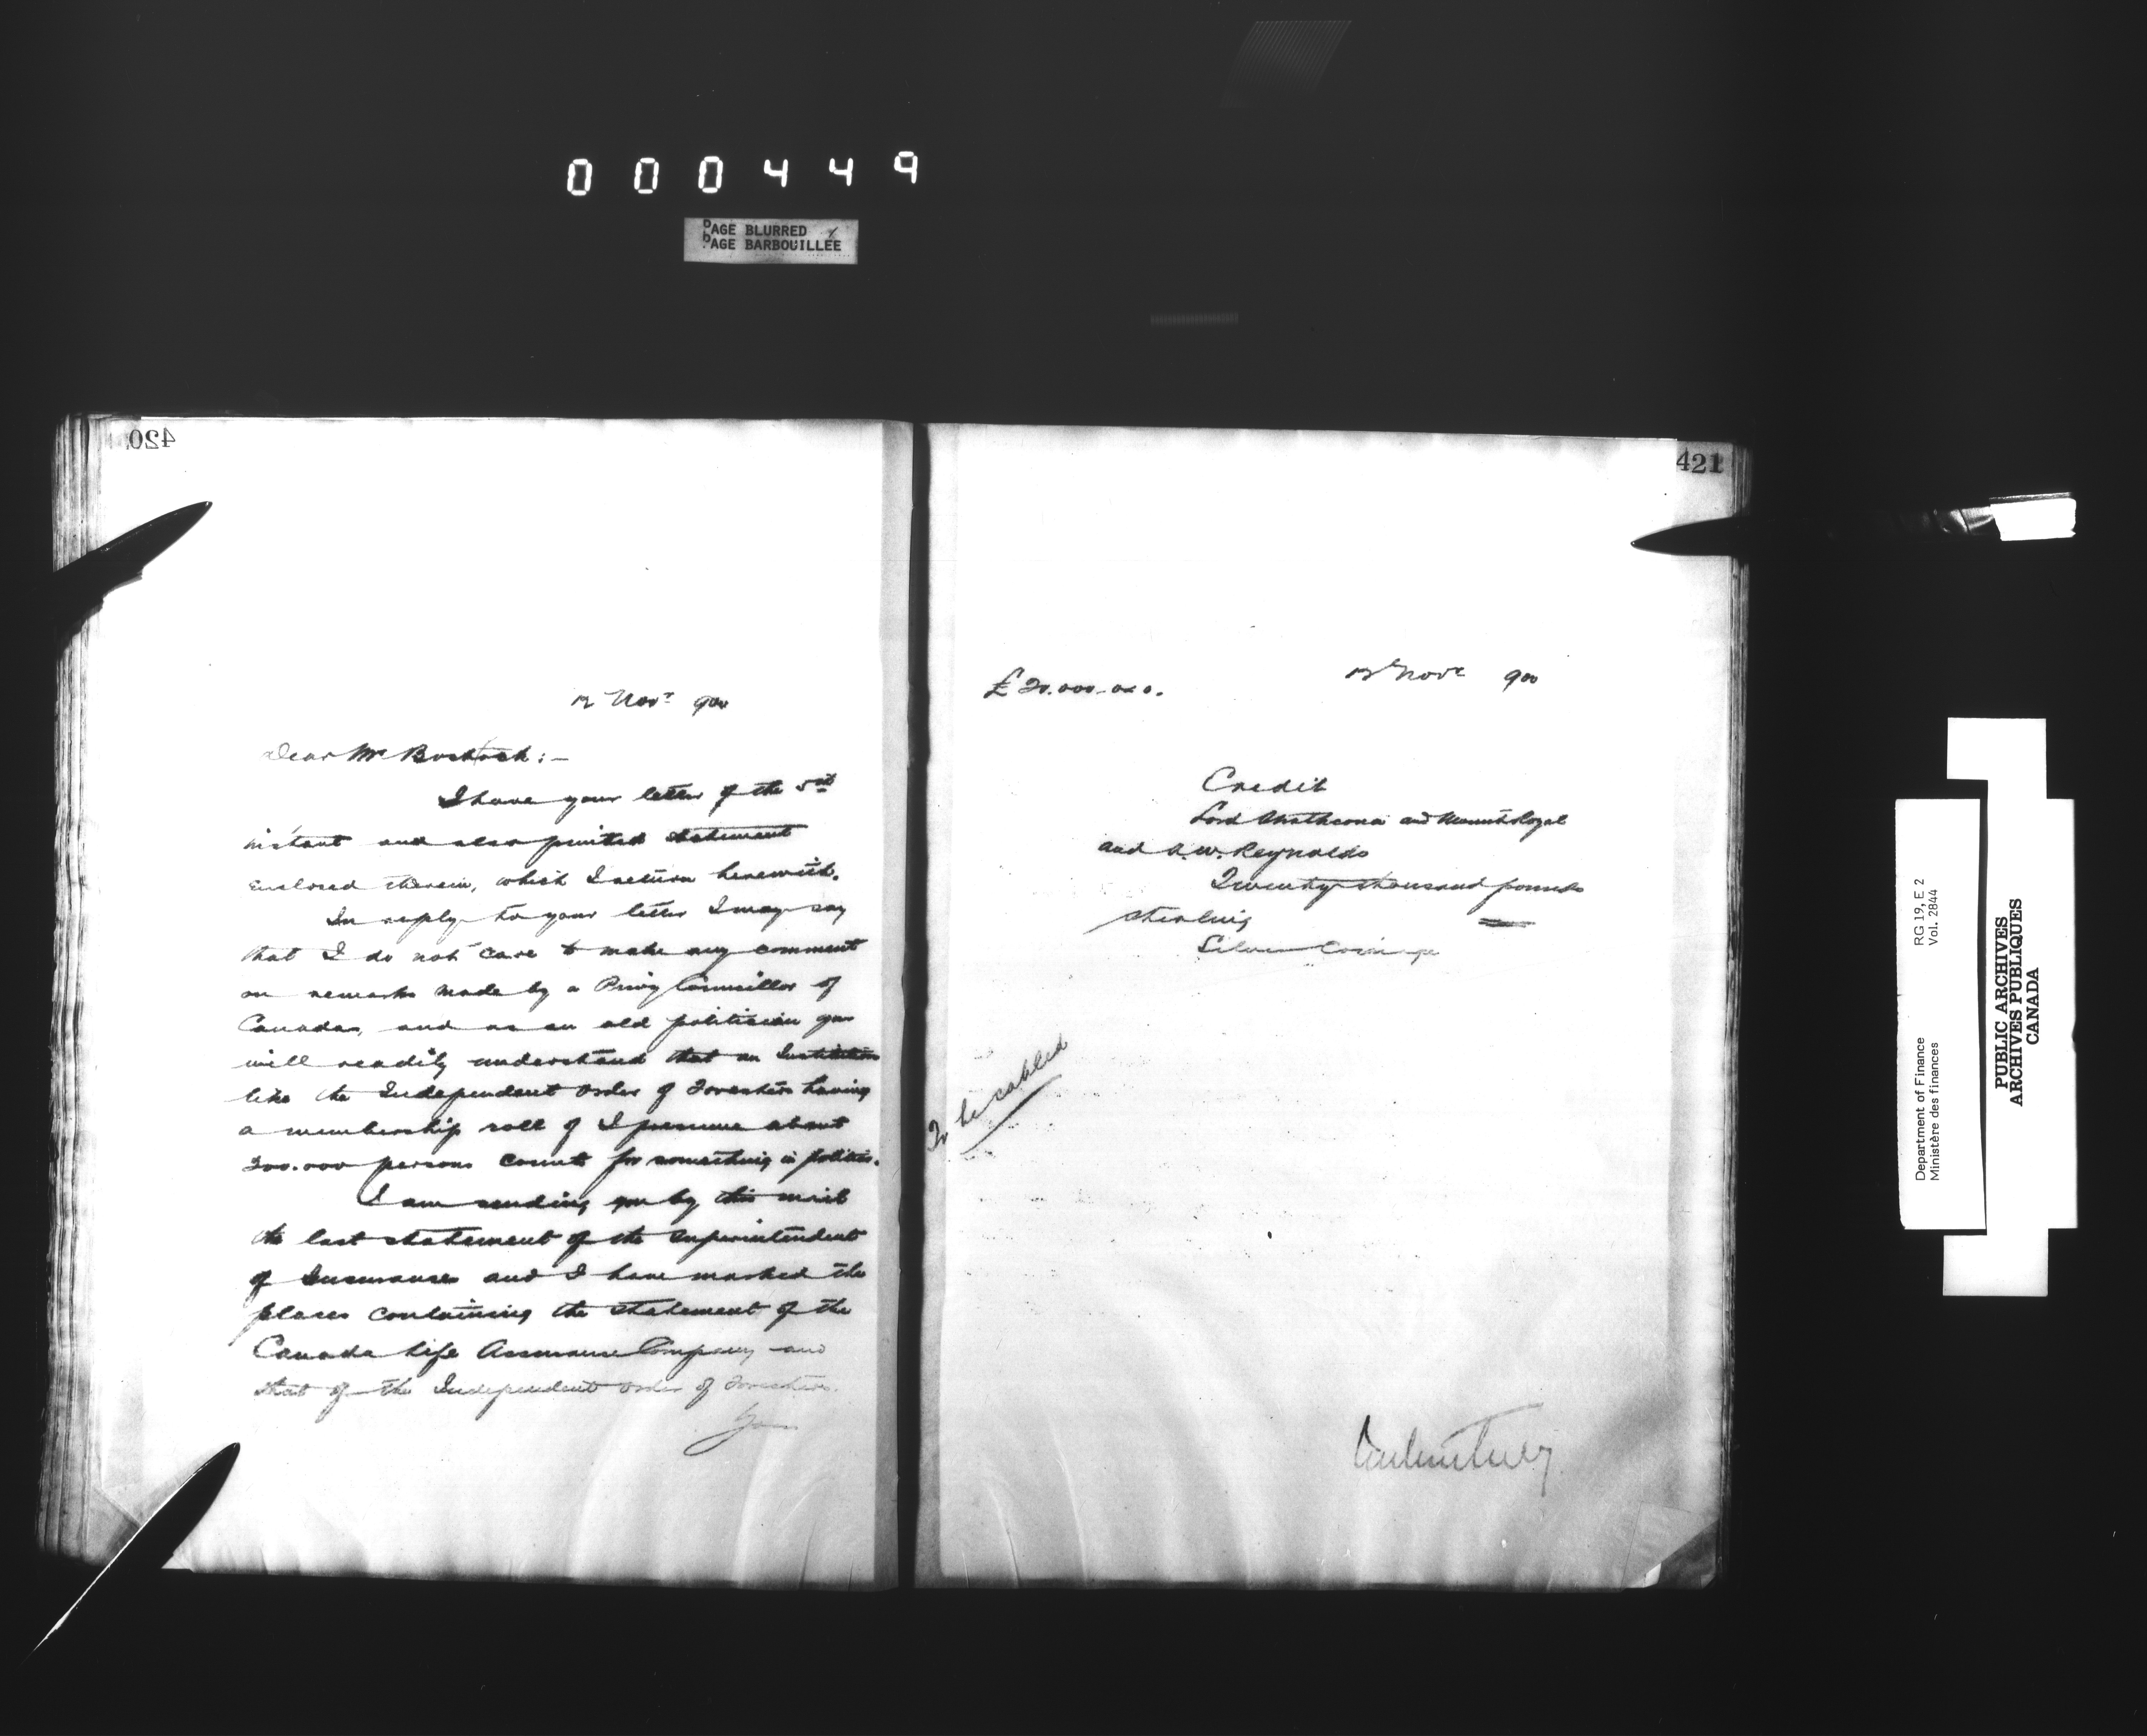 000449
PAGE BLURRED
PAGE BARBOUILLÉE
420
12 Novr 900
Dear Mr Bostock:-
I have your letter of the 5th
instant and also printed statement
enclosed therein, which I return herewith.
In reply to your letter I may say
that I do not care to make any comment
on remarks made by a Privy Councillor of
Canada, and as an old politician you
will readily understand that an Institution
like the Independent Order of Foresters having
a membership roll of I presume about
200.000 persons counts for something in politics.
I am sending you by this mail
the last statement of the Superintendent
of Insurance and I have marked the
places containing the statement of the
Canada Life Assurance Company and
that of the Independent Order of Foresters.
Yours
421
£20.000-0-0.
12th Novr 900
Credit
Lord Strathcona and Mount Royal
and A.W. Reynolds
Twenty thousand pounds
sterling
Silver Coinage
To be cabled
RG 19, E 2
Vol. 2844
Department of Finance
Ministère des finances
PUBLIC ARCHIVES
ARCHIVES PUBLIQUES
CANADA